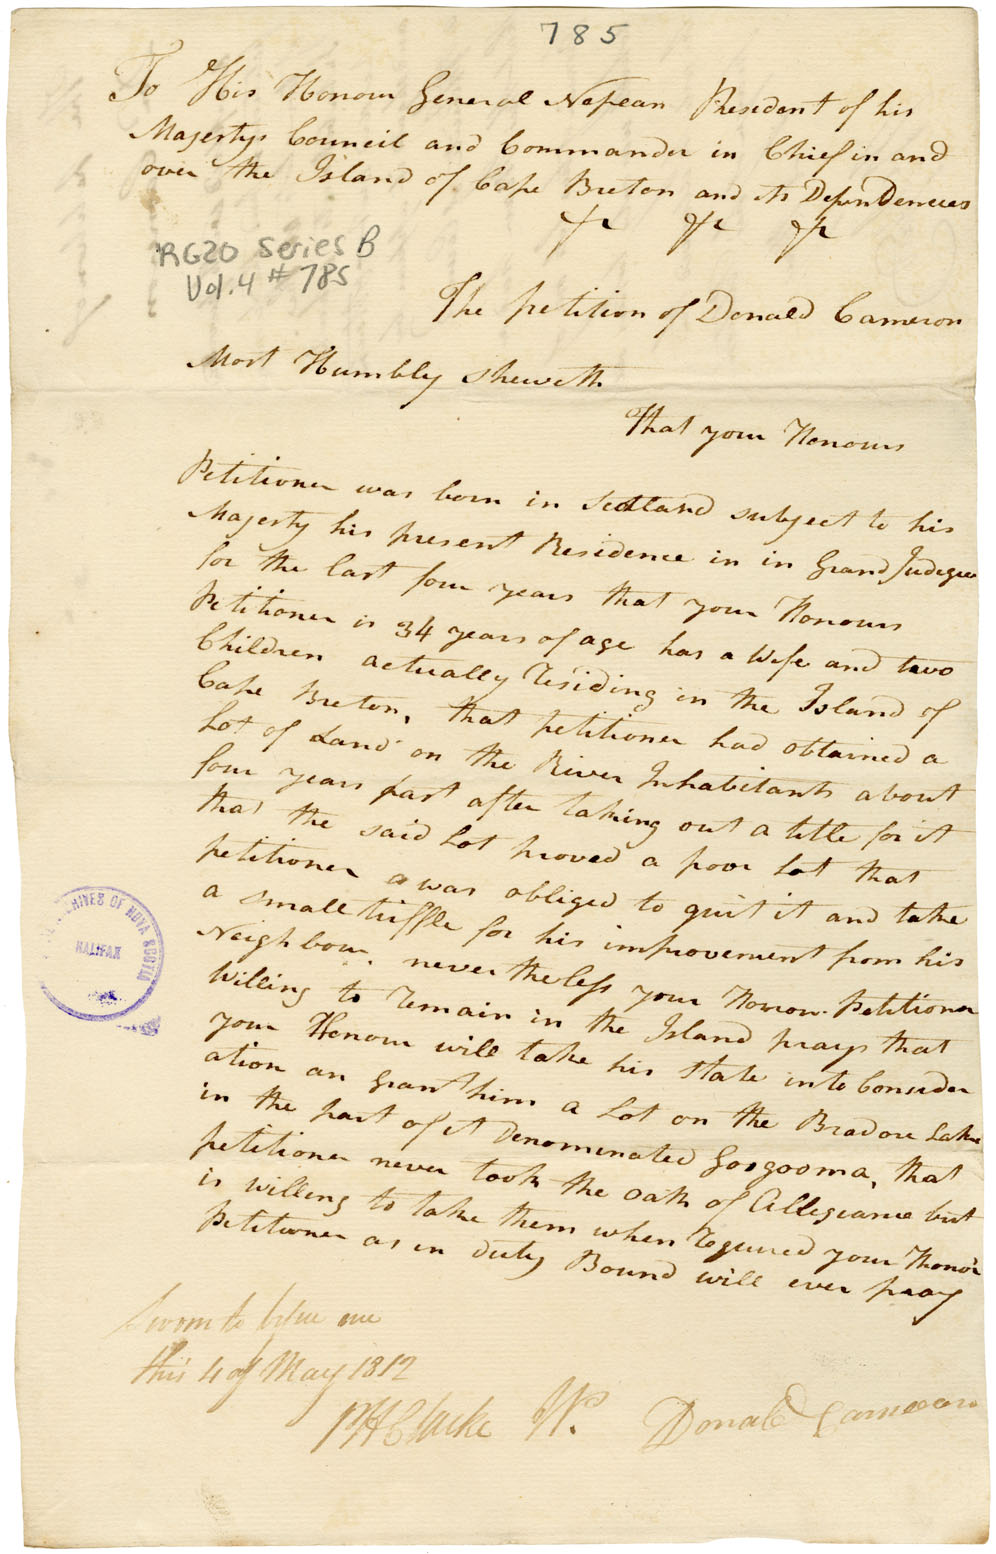 785
To His Honour General Nepean President of his
Majestys Council and Commander in Chief in and
over the Island of Cape Breton and its DependDences
RG20 Series B
Vol. 4 # 785
The petition of Donald Cameron
Most Humbly sheweth
That your Honours
Petitioner was born in Scotland subject to his
Majesty his present Residence in in Grand Judegree
for the last four years that your Honours
Petitioner is 34 years of age has a Wife and two
Children actually residing in the Island of
Cape Breton, that petitioner had obtained a
Lot of Land on the River Inhabitants about
four years past after taking out a title for it
that the said Lot proved a poor Lot that
petitioner was obliged to quit it and take
a small triffle for his improvement from his
Neighbour. never the less your Honour Petitioner
Willing to remain in the Island prays that
your Honour will take his State into Consider
ation an Grant him a Lot on the Bradore Lake
in the part of it Denominated Gosgooma, that
petitioner never took the oath of Allegiance but
is willing to take them when required your Honor
Petitioner as in duty Bound will ever pray
Sworn to before me
this 4 of May 1812
Clarke JP. Donald Cameron
ARCHIVES OF NOVA SCOTIA
HALIFAX